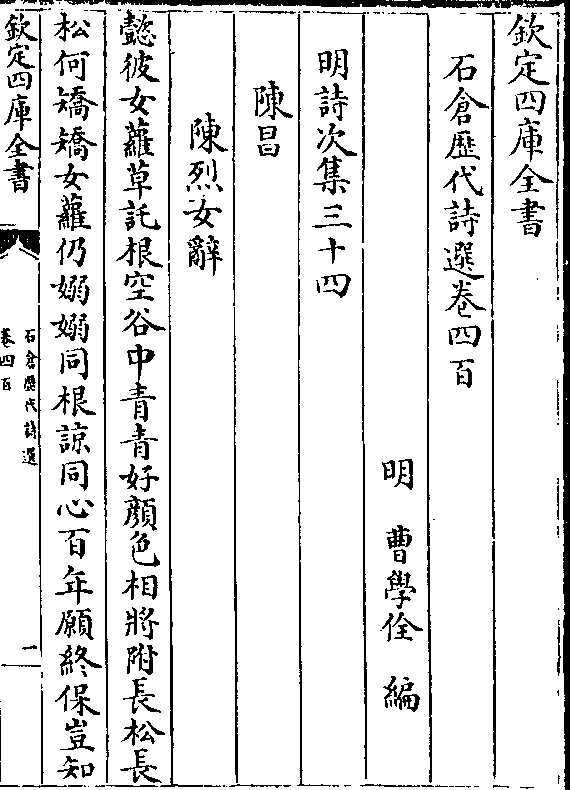 欽定四庫全書
石倉歷代詩選卷四百
明 曹學佺 編
明詩次集三十四
陳昌
陳烈女辭
懿彼女蘿草託根空谷中青青好顔色相將附長松長
松何矯矯女蘿仍嫋嫋同根諒同心百年願終保豈知
欽定四庫全書
石倉歷代詩選
卷四百
一